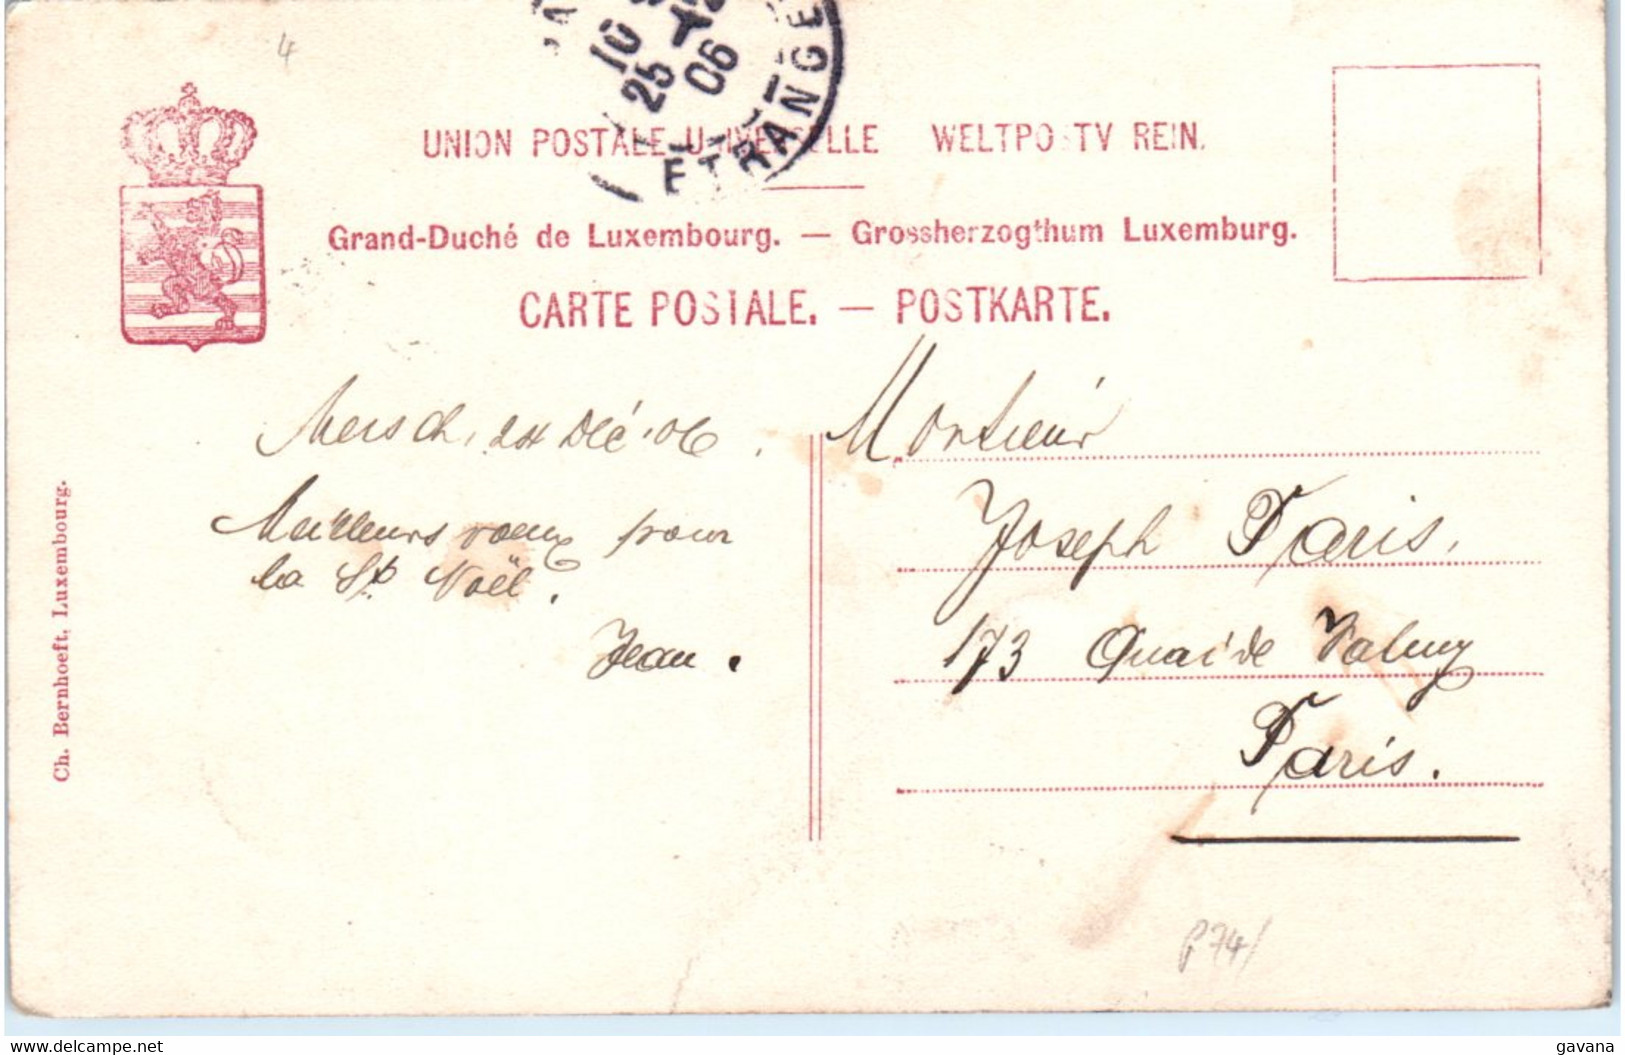 4
10
25 -12
06
ETRANGE
UNION POSTALE UNIVERSELLE WELTPOSTVEREIN.
Grand-Duché de Luxembourg. — Grossherzogthum Luxemburg.
CARTE POSTALE. — POSTKARTE.
Mersch, 24 Déc '06.
Meilleurs voeux pour
la St. Noël.
Jean.
Monsieur
Joseph Paris,
173 Quai de Valmy
Paris.
Ch. Bernhoeft, Luxembourg.
P74/
gavana